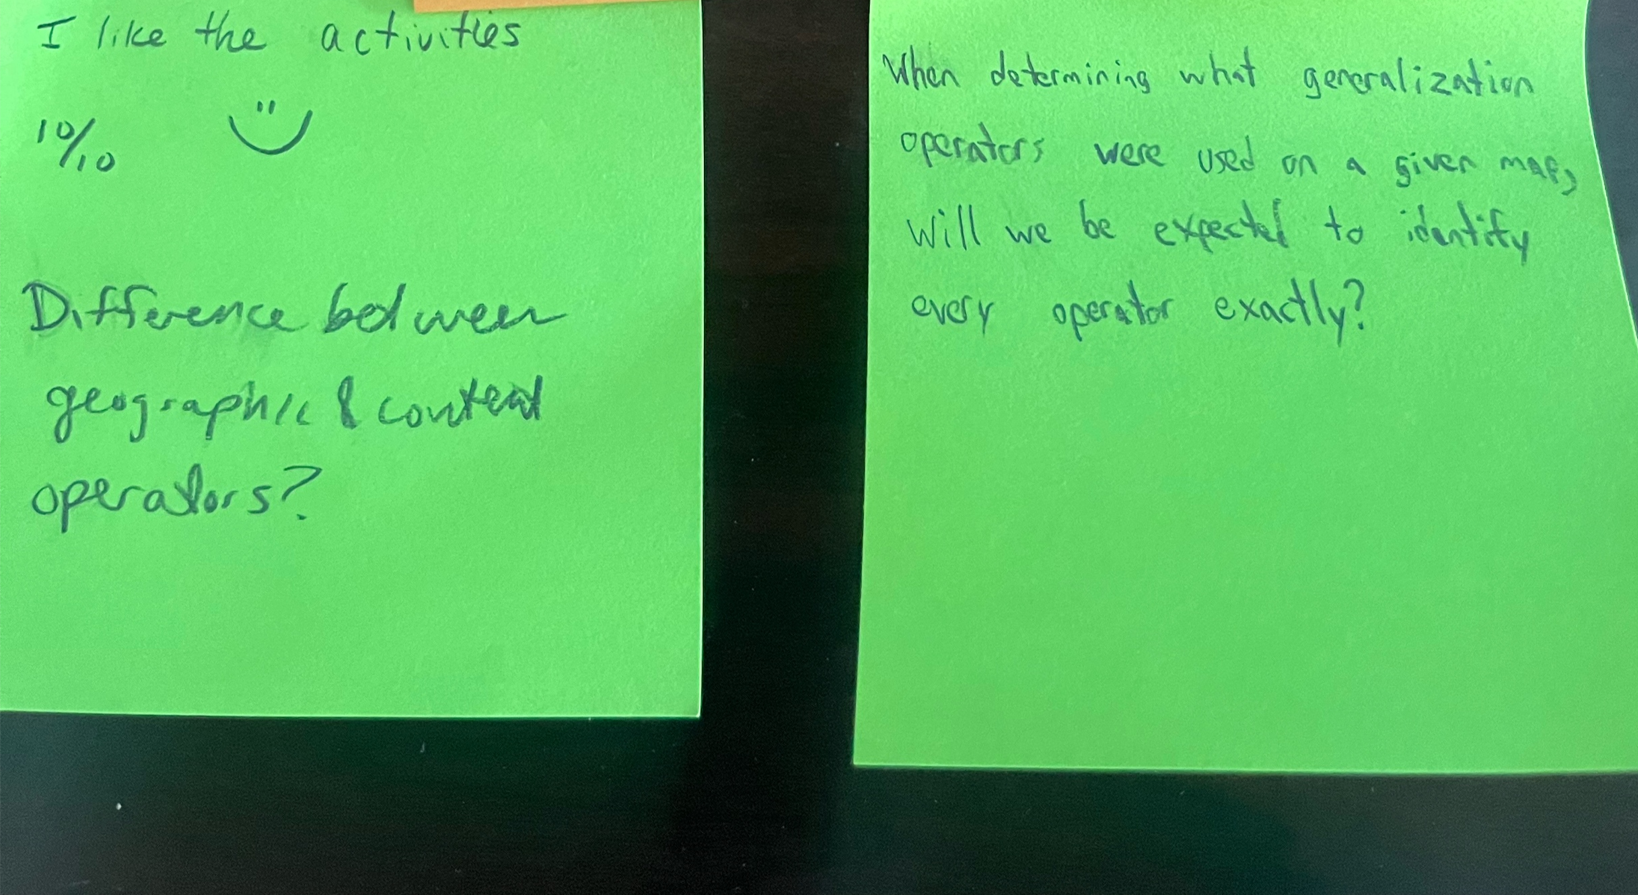 I like the activities
10/10
Difference between
geographic & content
operators?
When determining what generalization
operators were used on a given map,
will we be expected to identify
every operator exactly?